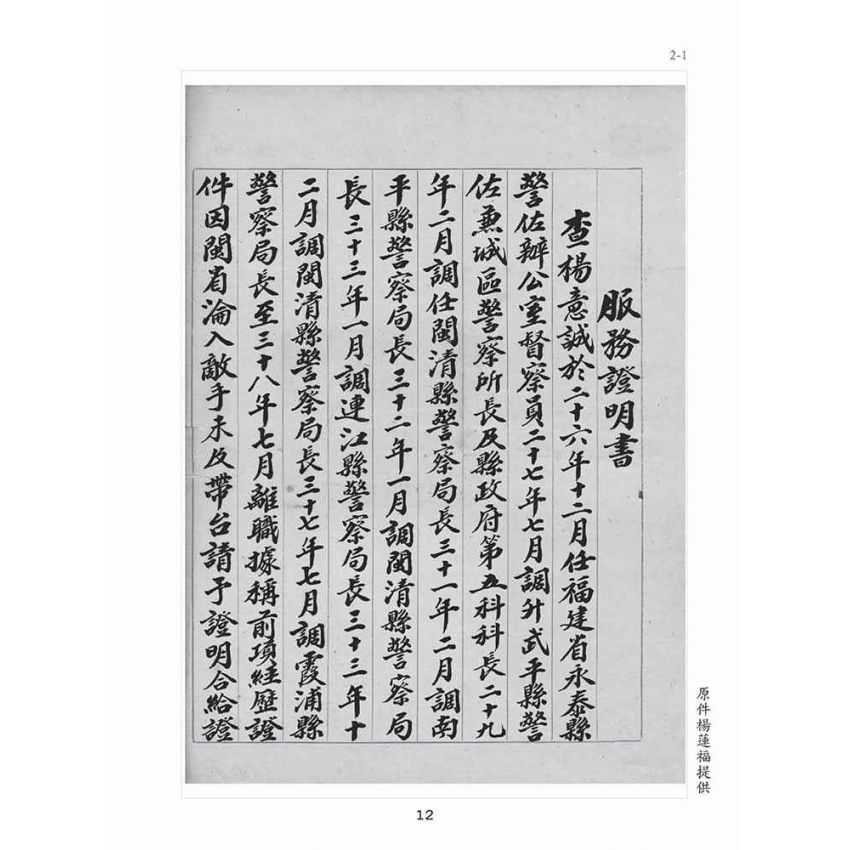 2-1
服務證明書
查楊意誠於二十六年十二月任福建省永泰縣
警佐辦公室督察員二十七年七月調升武平縣警
佐兼城區警察所長及縣政府第五科科長二十九
年二月調任閩清縣警察局長三十一年二月調南
平縣警察局長三十二年一月調閩清縣警察局
長三十三年一月調連江縣警察局長三十三年十
二月調閩清縣警察局長三十七年七月調霞浦縣
警察局長至三十八年七月離職據稱前項經歷證
件因閩省淪入敵手未及帶台請予證明合給證
原件楊蓮福提供
12